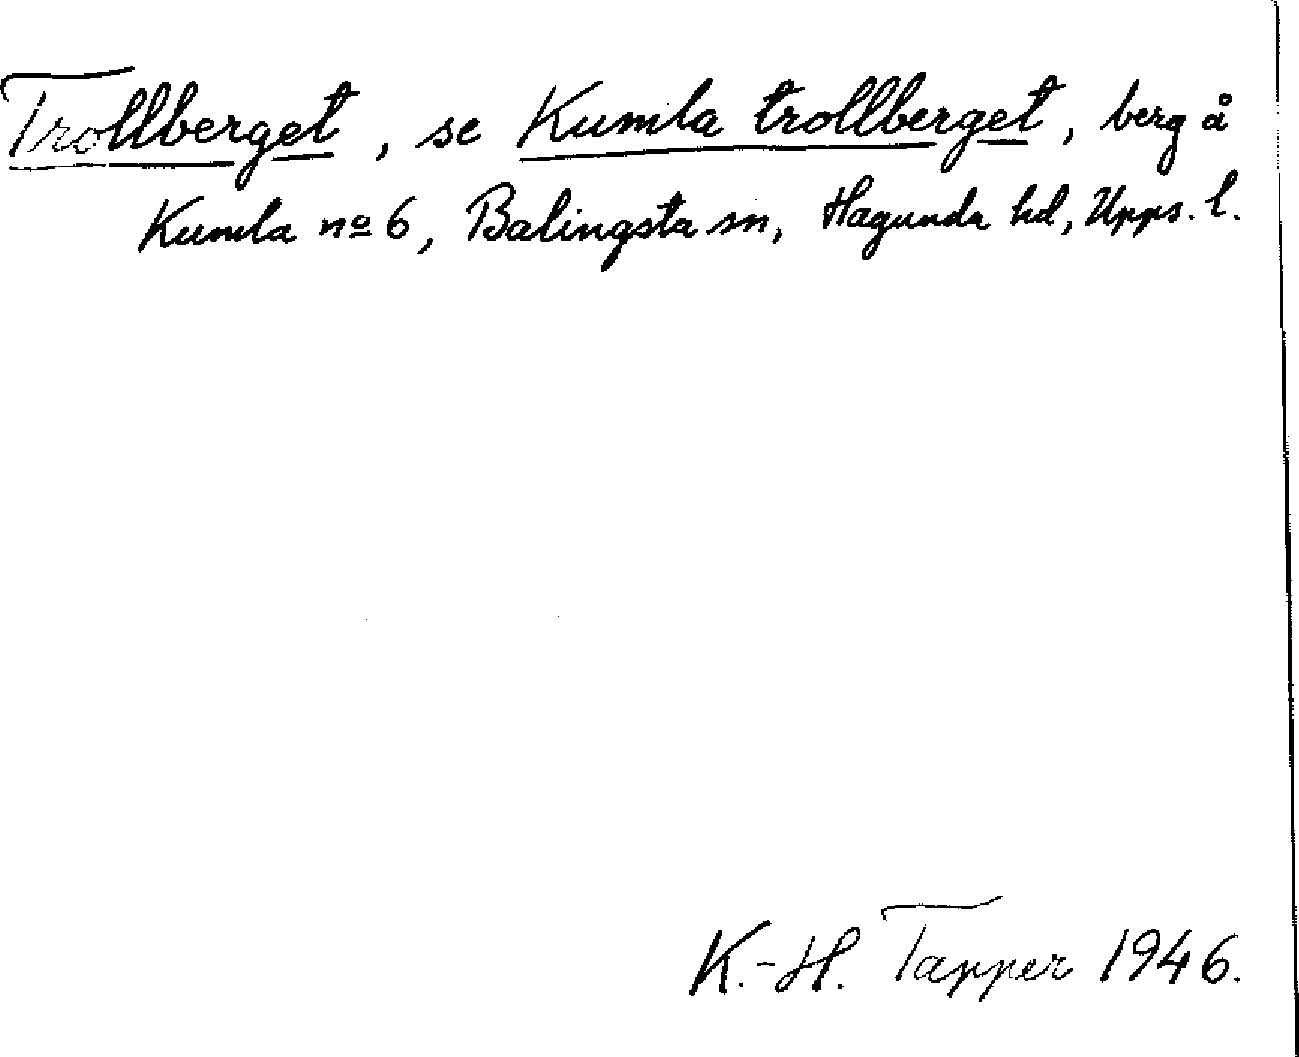 Trollberget, se Kumla trollberget, berg å
Kumla nº 6, Balingsta sn, Hagunda hd, Upps. l.
K.-H. Tapper 1946.